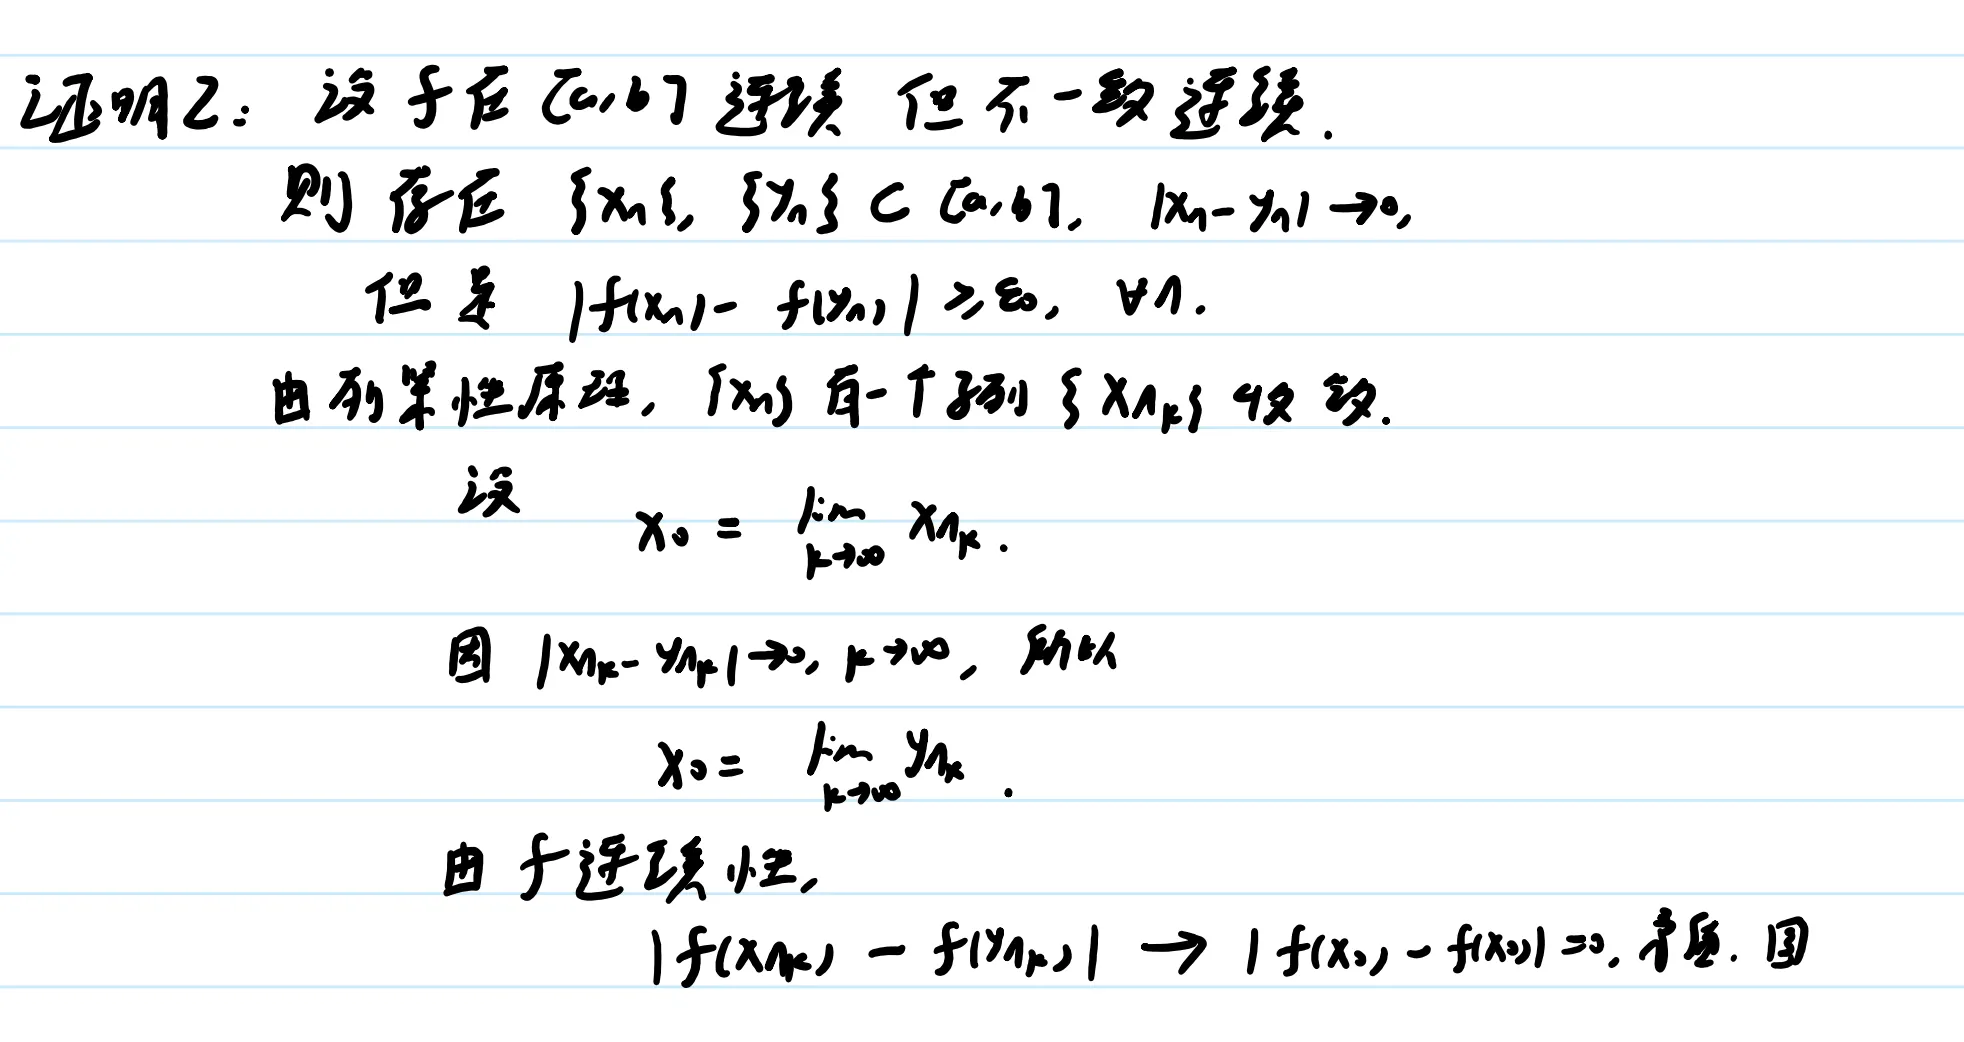 证明2: 设 f 在 [a,b] 连续 但不一致连续.
则存在 {xₙ}, {yₙ} ⊂ [a,b], |xₙ - yₙ| → 0,
但是 |f(xₙ) - f(yₙ)| ≥ ε₀, ∀n.
由列紧性原理, {xₙ} 有一个子列 {x_{n_k}} 收敛.
设 x₀ = lim_{k→∞} x_{n_k}.
因 |x_{n_k} - y_{n_k}| → 0, k→∞, 所以
x₀ = lim_{k→∞} y_{n_k}.
由 f 连续性,
|f(x_{n_k}) - f(y_{n_k})| → |f(x₀) - f(x₀)| = 0, 矛盾.